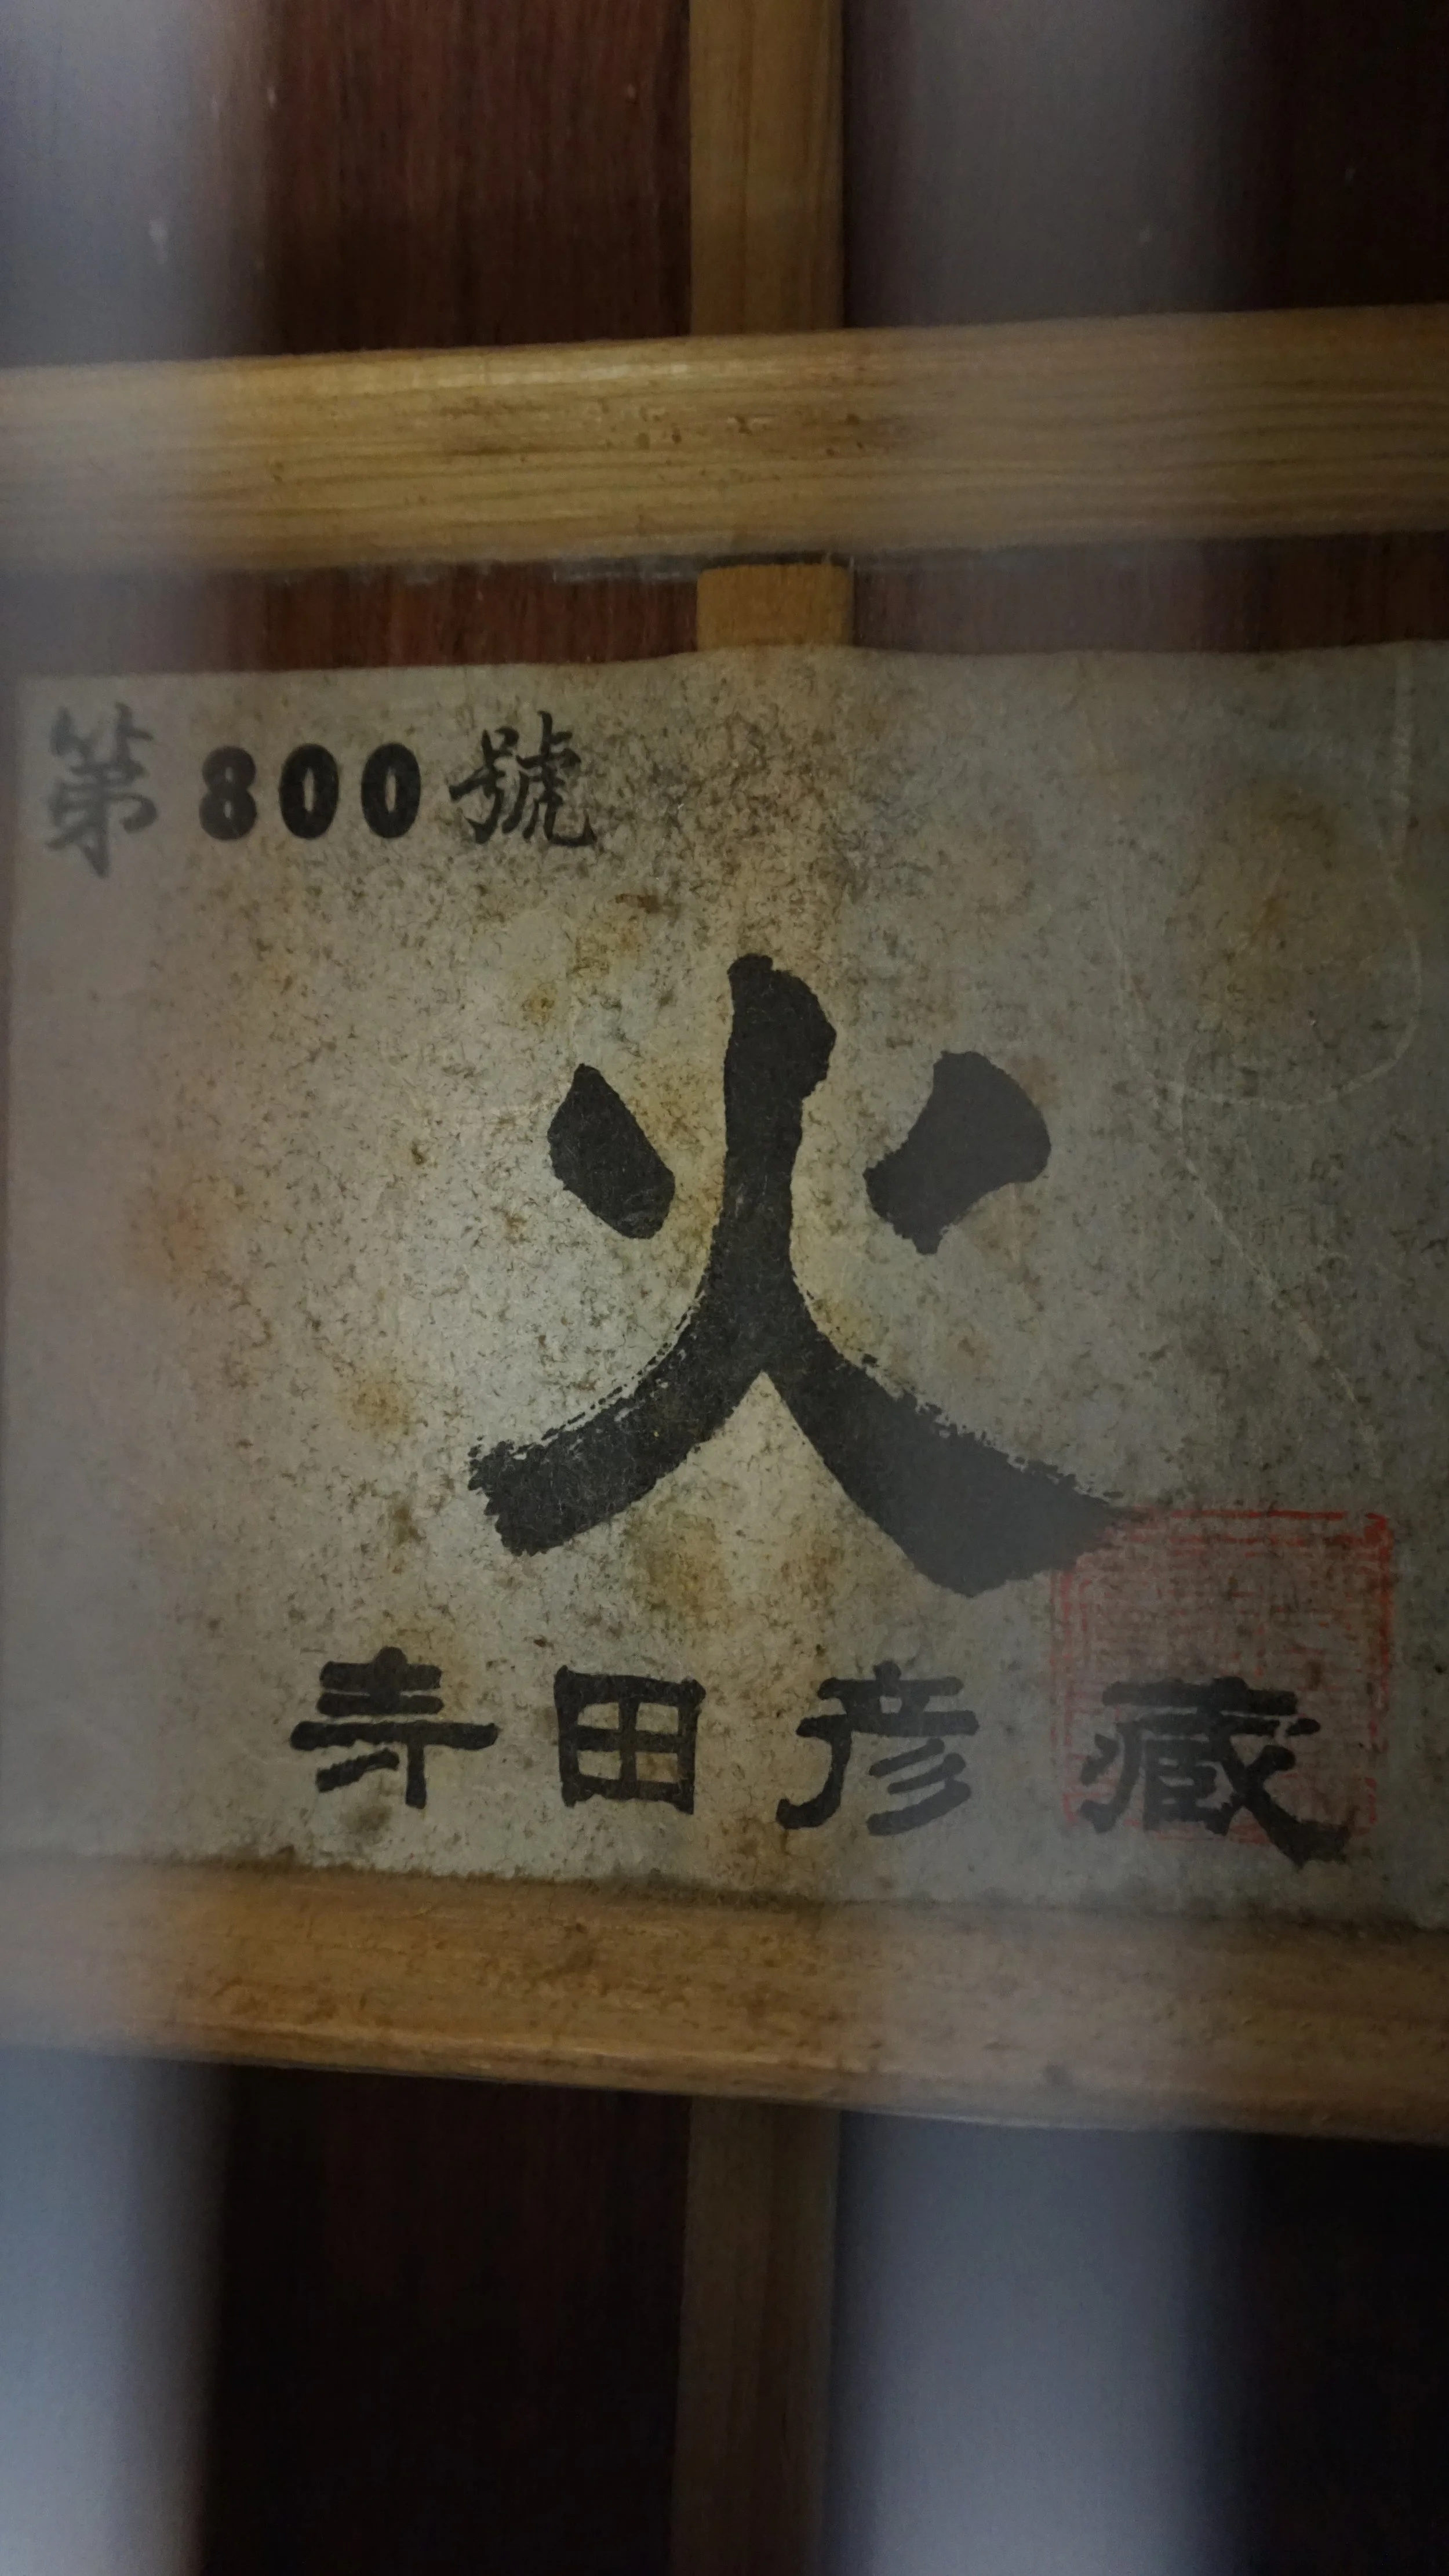 第800號
火
寺田彦藏